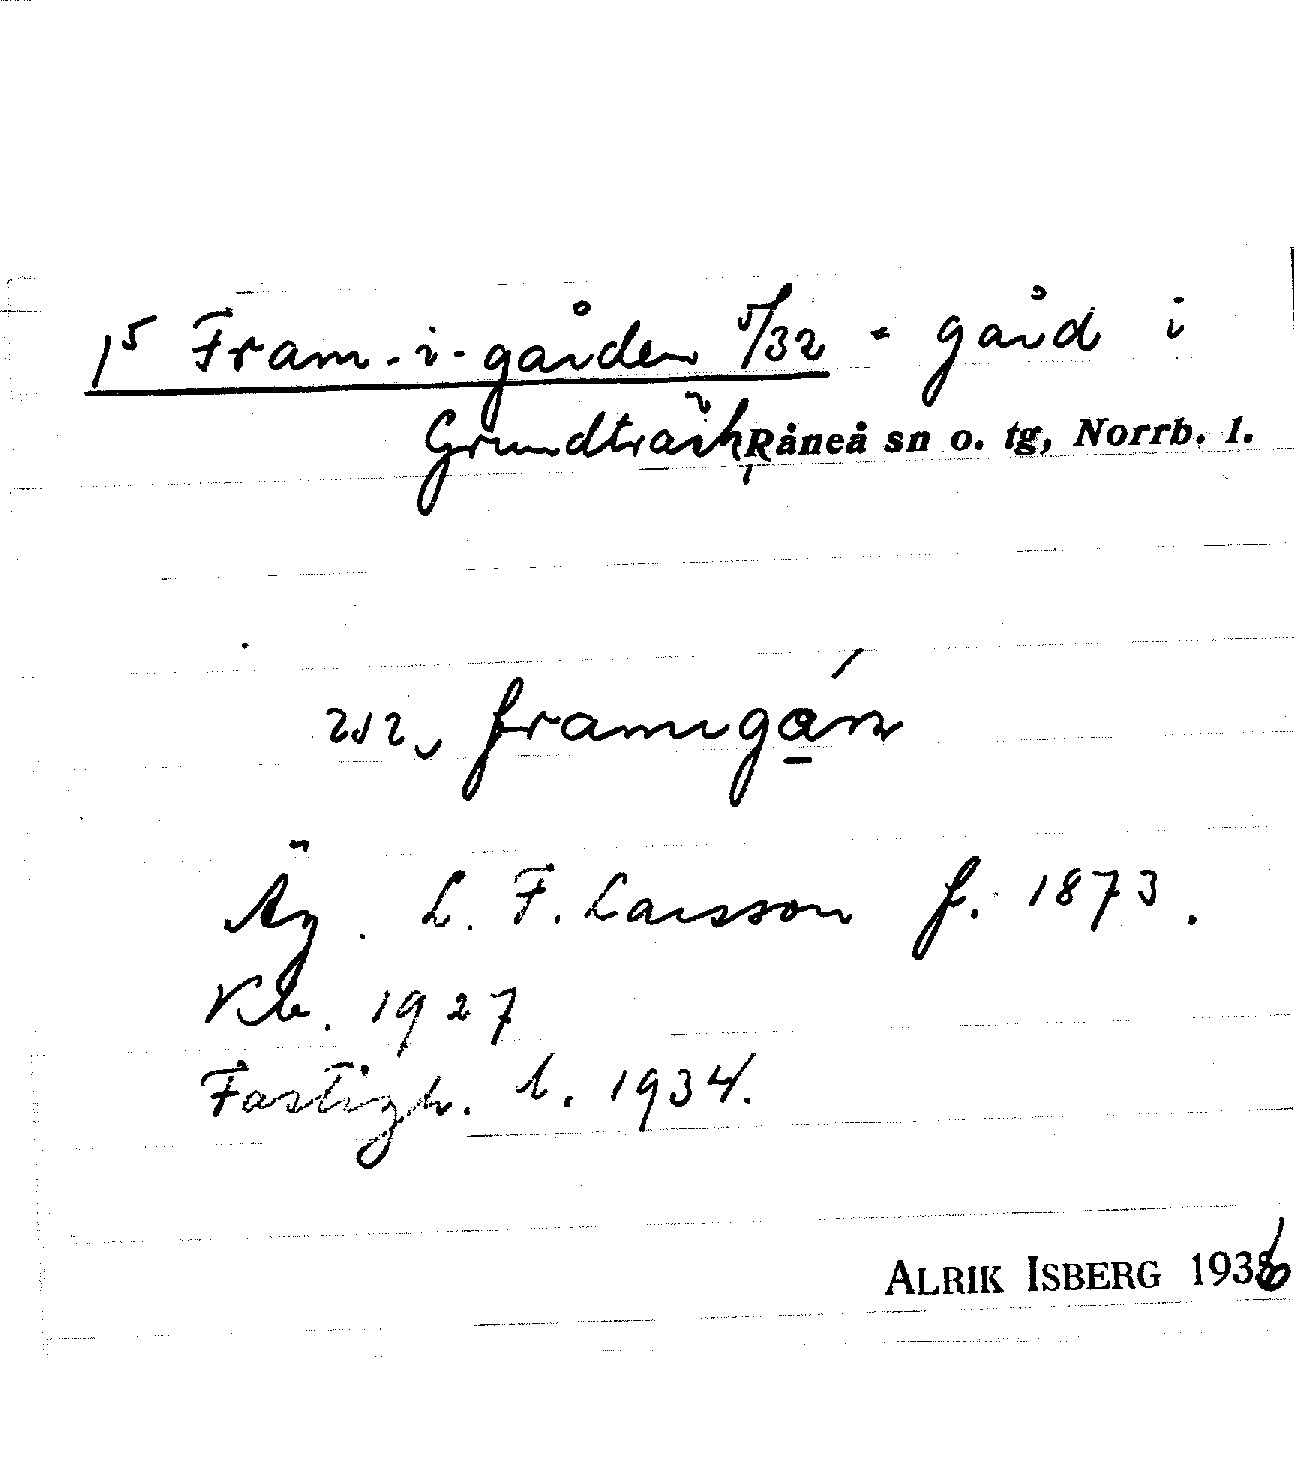 1⁵ Fram-i-gården 5/32 - gård i
Grundträsk, Råneå sn o. tg, Norrb. l.
framigán
Äg. L. F. Larsson f. 1873.
Kb. 1927
Fastigh. b. 1934.
ALRIK ISBERG 1936